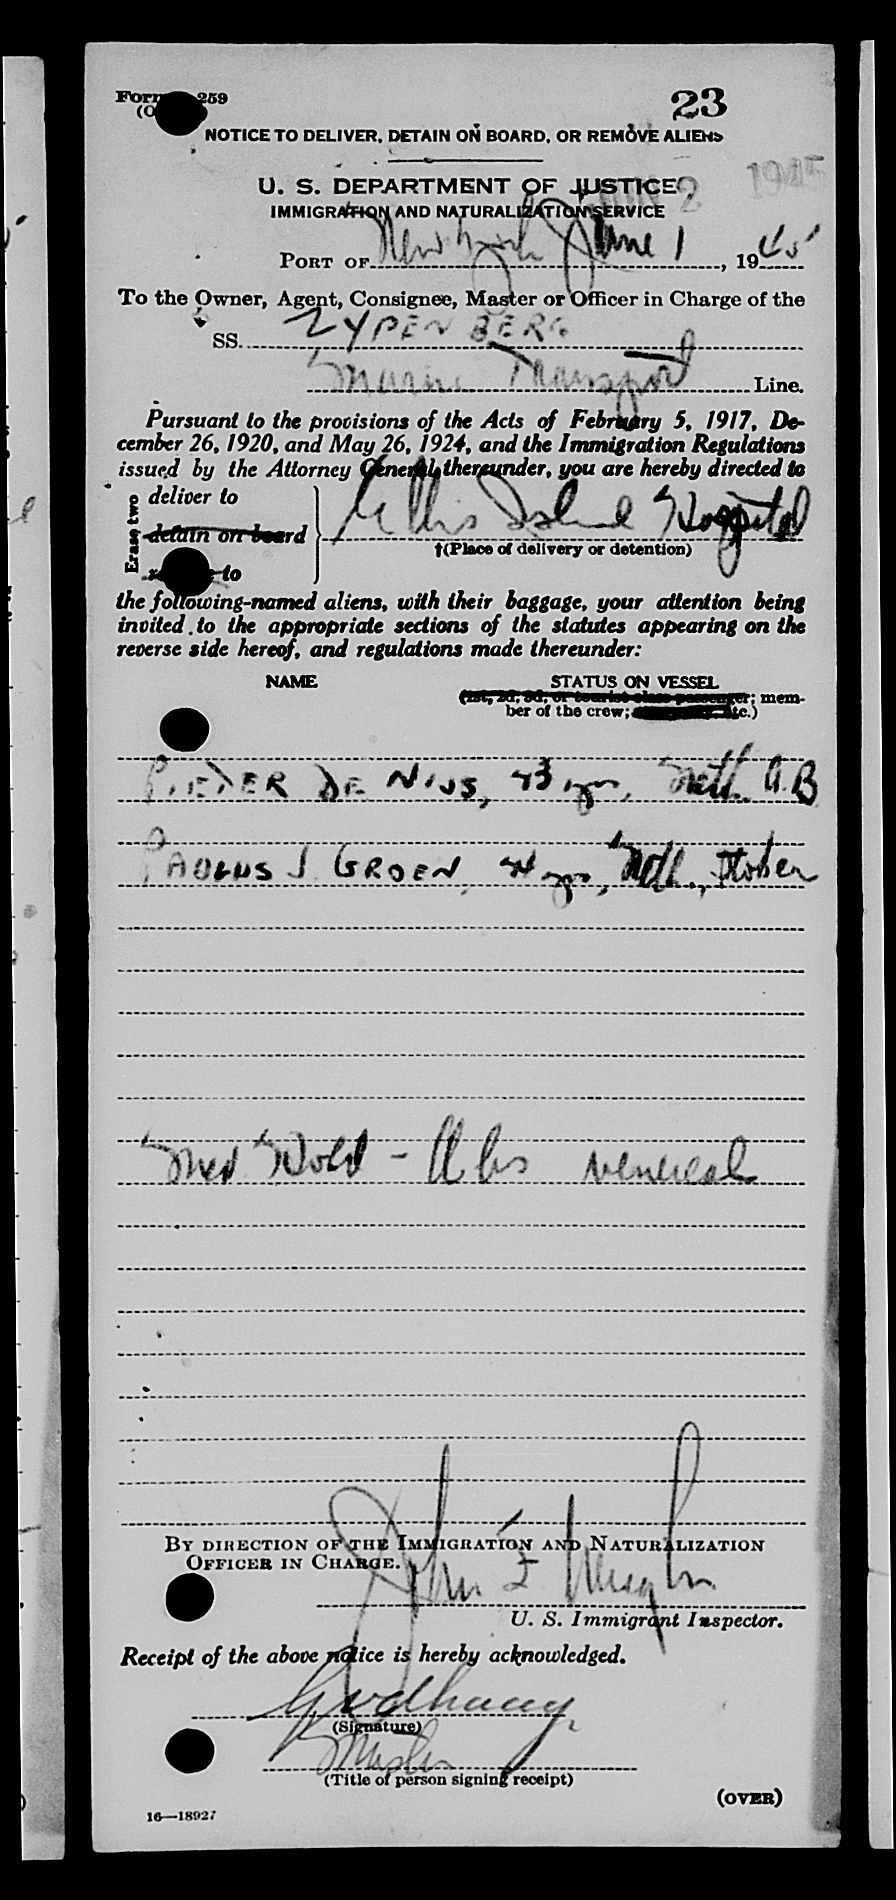 259
23
NOTICE TO DELIVER, DETAIN ON BOARD, OR REMOVE ALIENS
U. S. DEPARTMENT OF JUSTICE
2 1945
IMMIGRATION AND NATURALIZATION SERVICE
PORT OF New York June 1, 1945
To the Owner, Agent, Consignee, Master or Officer in Charge of the
SS. ZYPENBERG
Marine Transport Line.
Pursuant to the provisions of the Acts of February 5, 1917, De-
cember 26, 1920, and May 26, 1924, and the Immigration Regulations
issued by the Attorney General thereunder, you are hereby directed to
Erase two
deliver to
detain on board
to
Ellis Island Hospital
†(Place of delivery or detention)
the following-named aliens, with their baggage, your attention being
invited to the appropriate sections of the statutes appearing on the
reverse side hereof, and regulations made thereunder:
NAME STATUS ON VESSEL
(1st, 2d, 3d, or tourist class passenger; mem-
ber of the crew; etc.)
PIETER DE NIJS, 43 yrs, Neth. A.B
PAULUS J GROEN, yrs, Neth., Stoker
Med Hold - venereal
BY DIRECTION OF THE IMMIGRATION AND NATURALIZATION
OFFICER IN CHARGE.
John F
U. S. Immigrant Inspector.
Receipt of the above notice is hereby acknowledged.
(Signature)
Master
(Title of person signing receipt)
(OVER)
16—18927